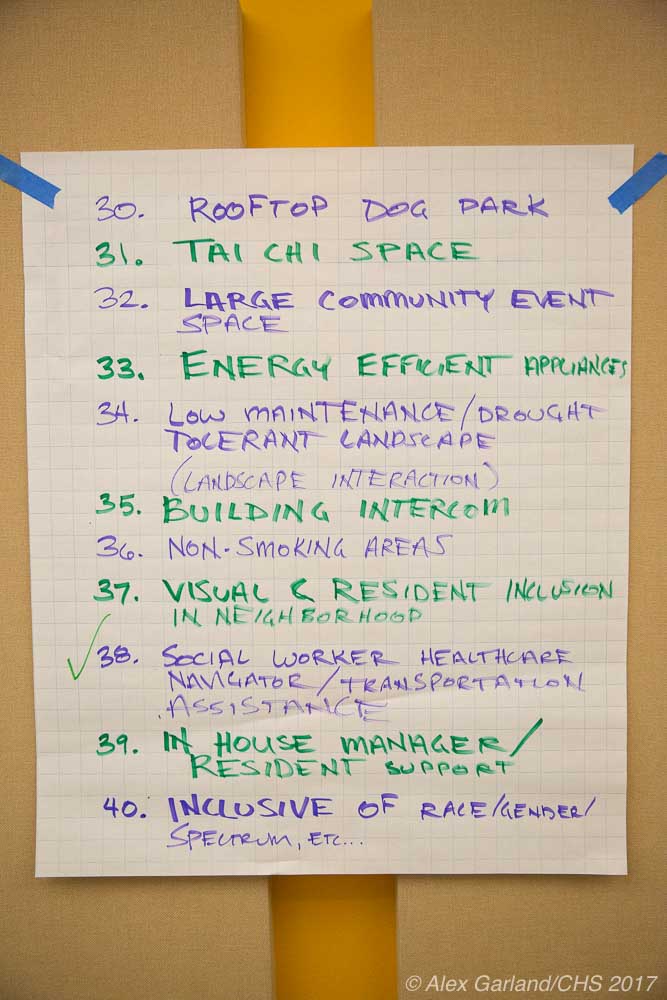 30. ROOFTOP DOG PARK
31. TAI CHI SPACE
32. LARGE COMMUNITY EVENT
SPACE
33. ENERGY EFFICIENT APPLIANCES
34. LOW MAINTENANCE/DROUGHT
TOLERANT LANDSCAPE
(LANDSCAPE INTERACTION)
35. BUILDING INTERCOM
36. NON-SMOKING AREAS
37. VISUAL & RESIDENT INCLUSION
IN NEIGHBORHOOD
38. SOCIAL WORKER HEALTHCARE
NAVIGATOR/TRANSPORTATION
ASSISTANCE
39. IN HOUSE MANAGER/
RESIDENT SUPPORT
40. INCLUSIVE OF RACE/GENDER/
SPECTRUM, ETC...
© Alex Garland/CHS 2017